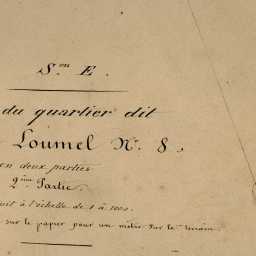 S.on E.
du quartier dit
Loumel N.° 8.
en deux parties
2.ème Partie.
uit à l'échelle de 1 à 1000.
sur le papier pour un mètre sur le terrain.